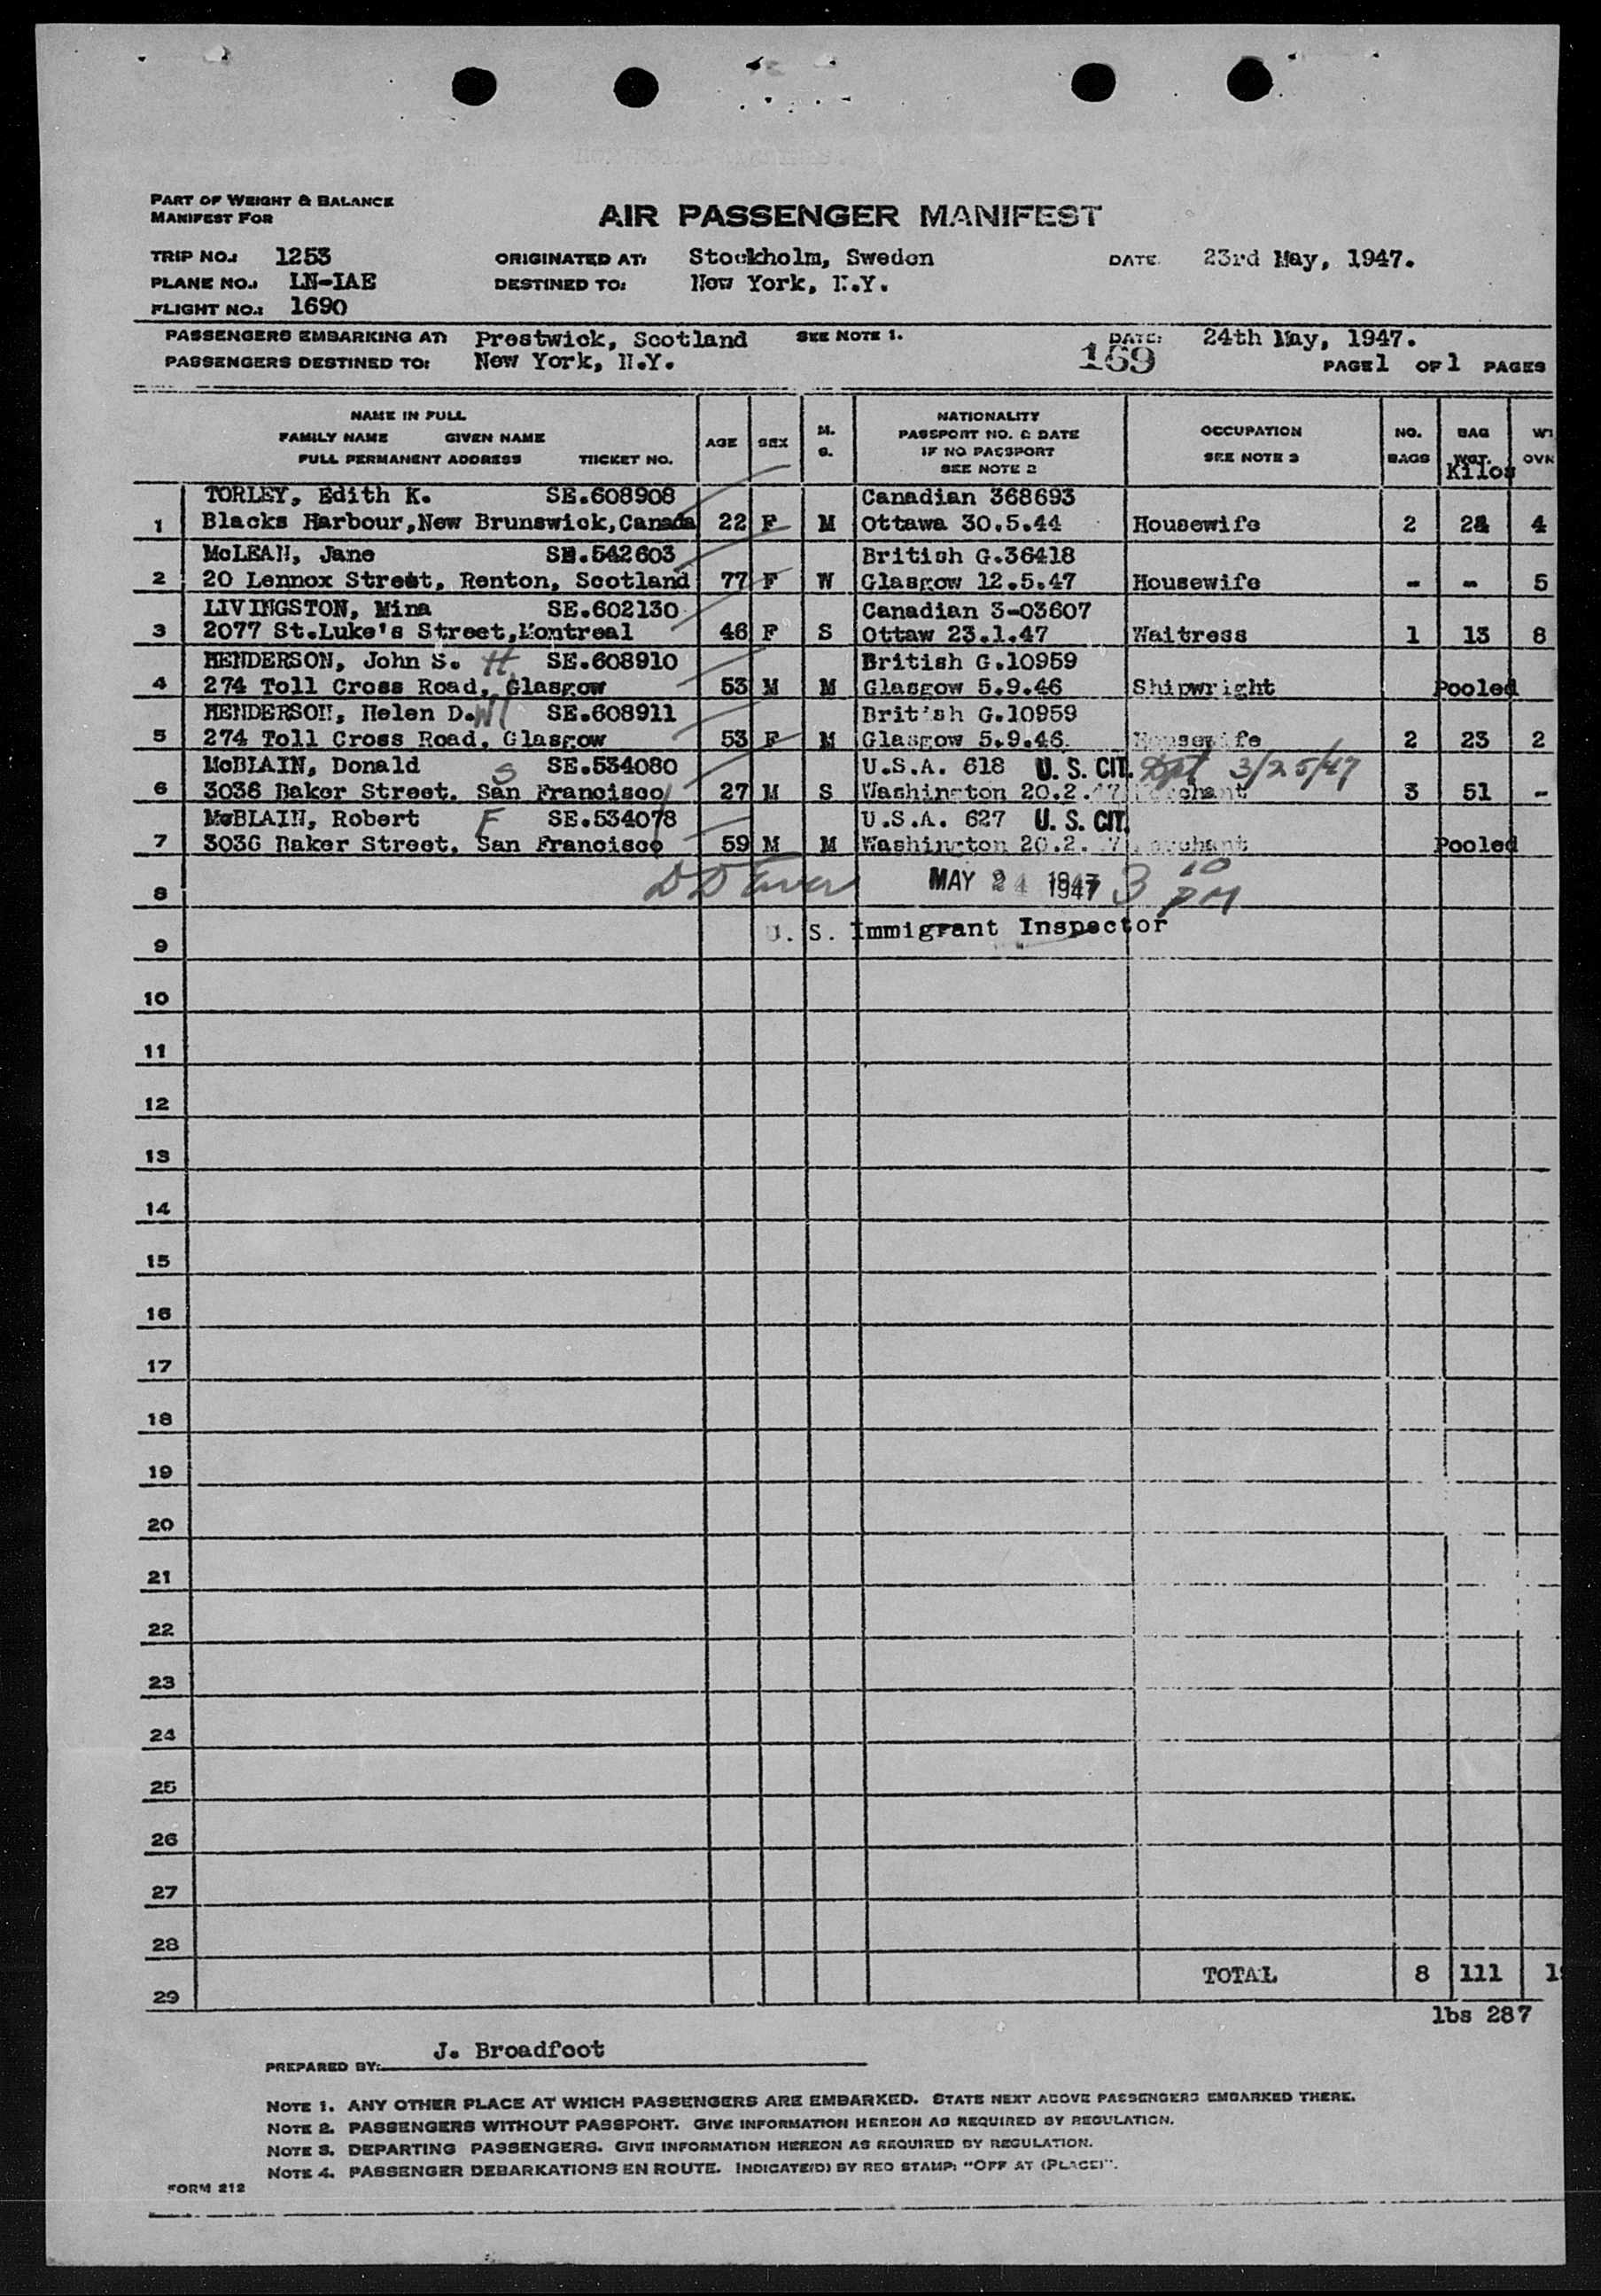 PART OF WEIGHT & BALANCE
MANIFEST FOR
AIR PASSENGER MANIFEST
TRIP NO.: 1253 ORIGINATED AT: Stockholm, Sweden DATE: 23rd May, 1947.
PLANE NO.: LN-IAE DESTINED TO: New York, N.Y.
FLIGHT NO.: 1690
PASSENGERS EMBARKING AT: Prestwick, Scotland SEE NOTE 1. DATE: 24th May, 1947.
PASSENGERS DESTINED TO: New York, N.Y. 159 PAGE 1 OF 1 PAGES
NAME IN FULL
FAMILY NAME GIVEN NAME
FULL PERMANENT ADDRESS TICKET NO.
AGE SEX M. S.
NATIONALITY
PASSPORT NO. & DATE
IF NO PASSPORT
SEE NOTE 2
OCCUPATION
SEE NOTE 3
NO. BAGS
BAG WGT. Kilos
TORLEY, Edith K. SE.608908 Canadian 368693
1 Blacks Harbour,New Brunswick,Canada 22 F M Ottawa 30.5.44 Housewife 2 24 4
McLEAN, Jane SE.542603 British G.36418
2 20 Lennox Street, Renton, Scotland 77 F W Glasgow 12.5.47 Housewife - - 5
LIVINGSTON, Mina SE.602130 Canadian 3-03607
3 2077 St.Luke's Street,Montreal 46 F S Ottaw 23.1.47 Waitress 1 13 8
HENDERSON, John S. H SE.608910 British G.10959
4 274 Toll Cross Road, Glasgow 53 M M Glasgow 5.9.46 Shipwright Pooled
HENDERSON, Helen D. W SE.608911 British G.10959
5 274 Toll Cross Road, Glasgow 53 F M Glasgow 5.9.46 Housewife 2 23 2
McBLAIN, Donald S SE.534080 U.S.A. 618 U. S. CIT. 3/25/47
6 3036 Baker Street, San Francisco 27 M S Washington 20.2.47 Merchant 3 51 -
McBLAIN, Robert F SE.534078 U.S.A. 627 U. S. CIT.
7 3036 Baker Street, San Francisco 59 M M Washington 20.2.47 Merchant Pooled
8 MAY 24 1947 3 10 PM
U. S. Immigrant Inspector
9
10
11
12
13
14
15
16
17
18
19
20
21
22
23
24
25
26
27
28
29 TOTAL 8 111
lbs 287
PREPARED BY: J. Broadfoot
NOTE 1. ANY OTHER PLACE AT WHICH PASSENGERS ARE EMBARKED. STATE NEXT ABOVE PASSENGERS EMBARKED THERE.
NOTE 2. PASSENGERS WITHOUT PASSPORT. GIVE INFORMATION HEREON AS REQUIRED BY REGULATION.
NOTE 3. DEPARTING PASSENGERS. GIVE INFORMATION HEREON AS REQUIRED BY REGULATION.
NOTE 4. PASSENGER DEBARKATIONS EN ROUTE. INDICATE(D) BY RED STAMP: "OFF AT (PLACE)".
FORM 212